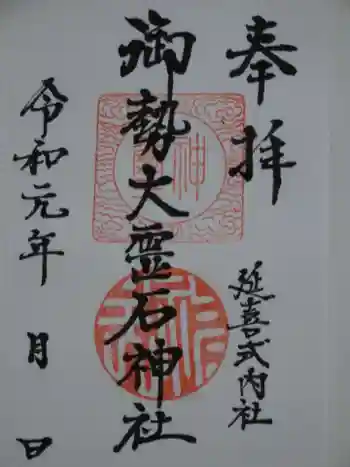 奉拝
延喜式内社
御勢大霊石神社
令和元年 月 日
神